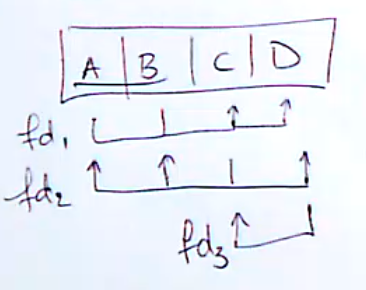 A B C D
fd₁
fd₂
fd₃